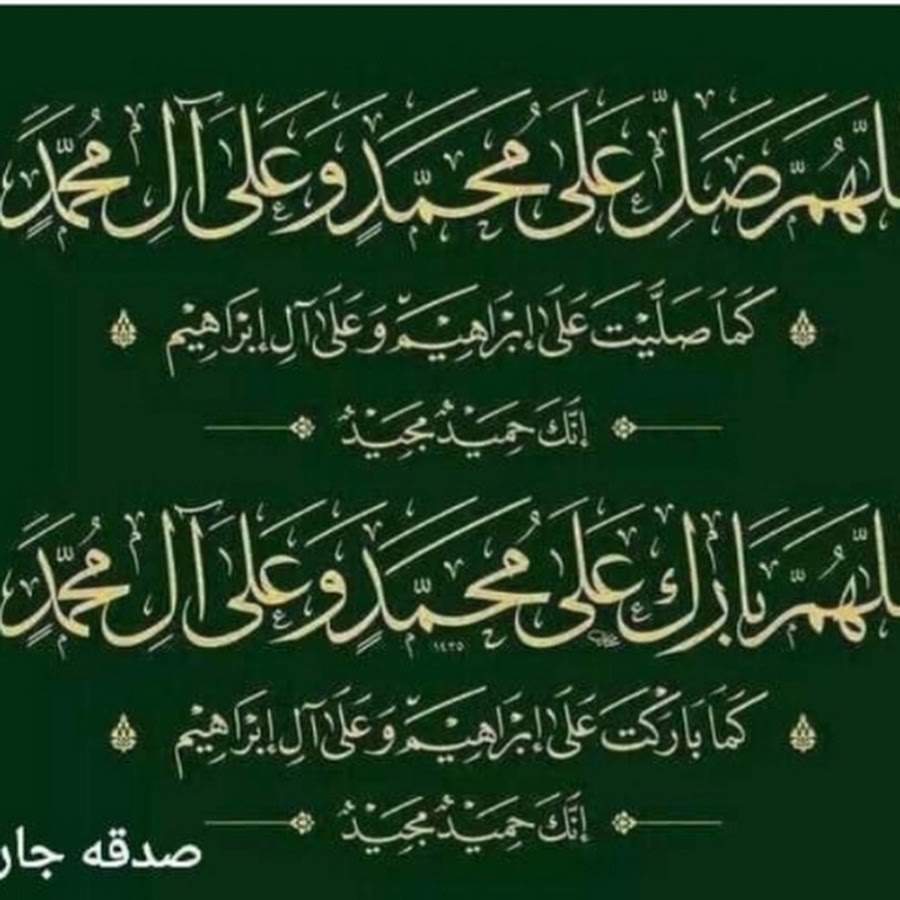 للهم صل على محمد وعلى آل محمد
كما صليت على إبراهيم وعلى آل إبراهيم
إنك حميد مجيد
للهم بارك على محمد وعلى آل محمد
١٤٣٥
كما باركت على إبراهيم وعلى آل إبراهيم
إنك حميد مجيد
صدقه جار